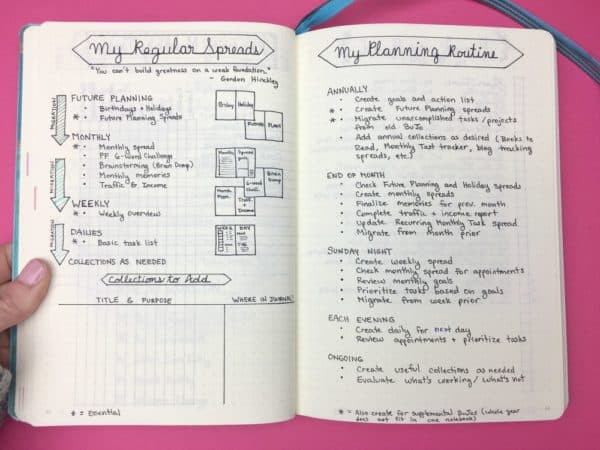 My Regular Spreads
"You can't build greatness on a weak foundation."
- Gordon Hinckley
MIGRATION
FUTURE PLANNING
• Birthdays + Holidays
* • Future Planning Spreads
MONTHLY
* • Monthly spread
• PF 6-Word Challenge
• Brainstorming (Brain Dump)
• Monthly memories
• Traffic & Income
MIGRATION
WEEKLY
* • Weekly overview
MIGRATION
DAILIES
* • Basic task list
COLLECTIONS AS NEEDED
Bday
Holiday
FUTURE
PLANS
Brain
Dump
6-word
chall.
Traffic
+
Income
WEEK
DAY
Collections to Add
TITLE & PURPOSE
WHERE IN JOURNAL
* = Essential
My Planning Routine
ANNUALLY
• Create goals and action list
* • Create Future Planning spreads
* • Migrate unaccomplished tasks/projects
from old BuJo
• Add annual collections as desired (Books to
Read, Monthly Task tracker, blog tracking
spreads, etc.)
END OF MONTH
• Check Future Planning and Holiday spreads
• Create monthly spreads
• Finalize memories for prev. month
• Complete traffic + income report
• Update Recurring Monthly Task spread
• Migrate from month prior
SUNDAY NIGHT
• Create weekly spread
• Check monthly spread for appointments
• Review monthly goals
• Prioritize tasks based on goals
• Migrate from week prior
EACH EVENING
• Create daily for next day
• Review appointments + prioritize tasks
ONGOING
• Create useful collections as needed
• Evaluate what's working/what's not
* = Also create for supplemental BuJos (whole year
does not fit in one notebook)